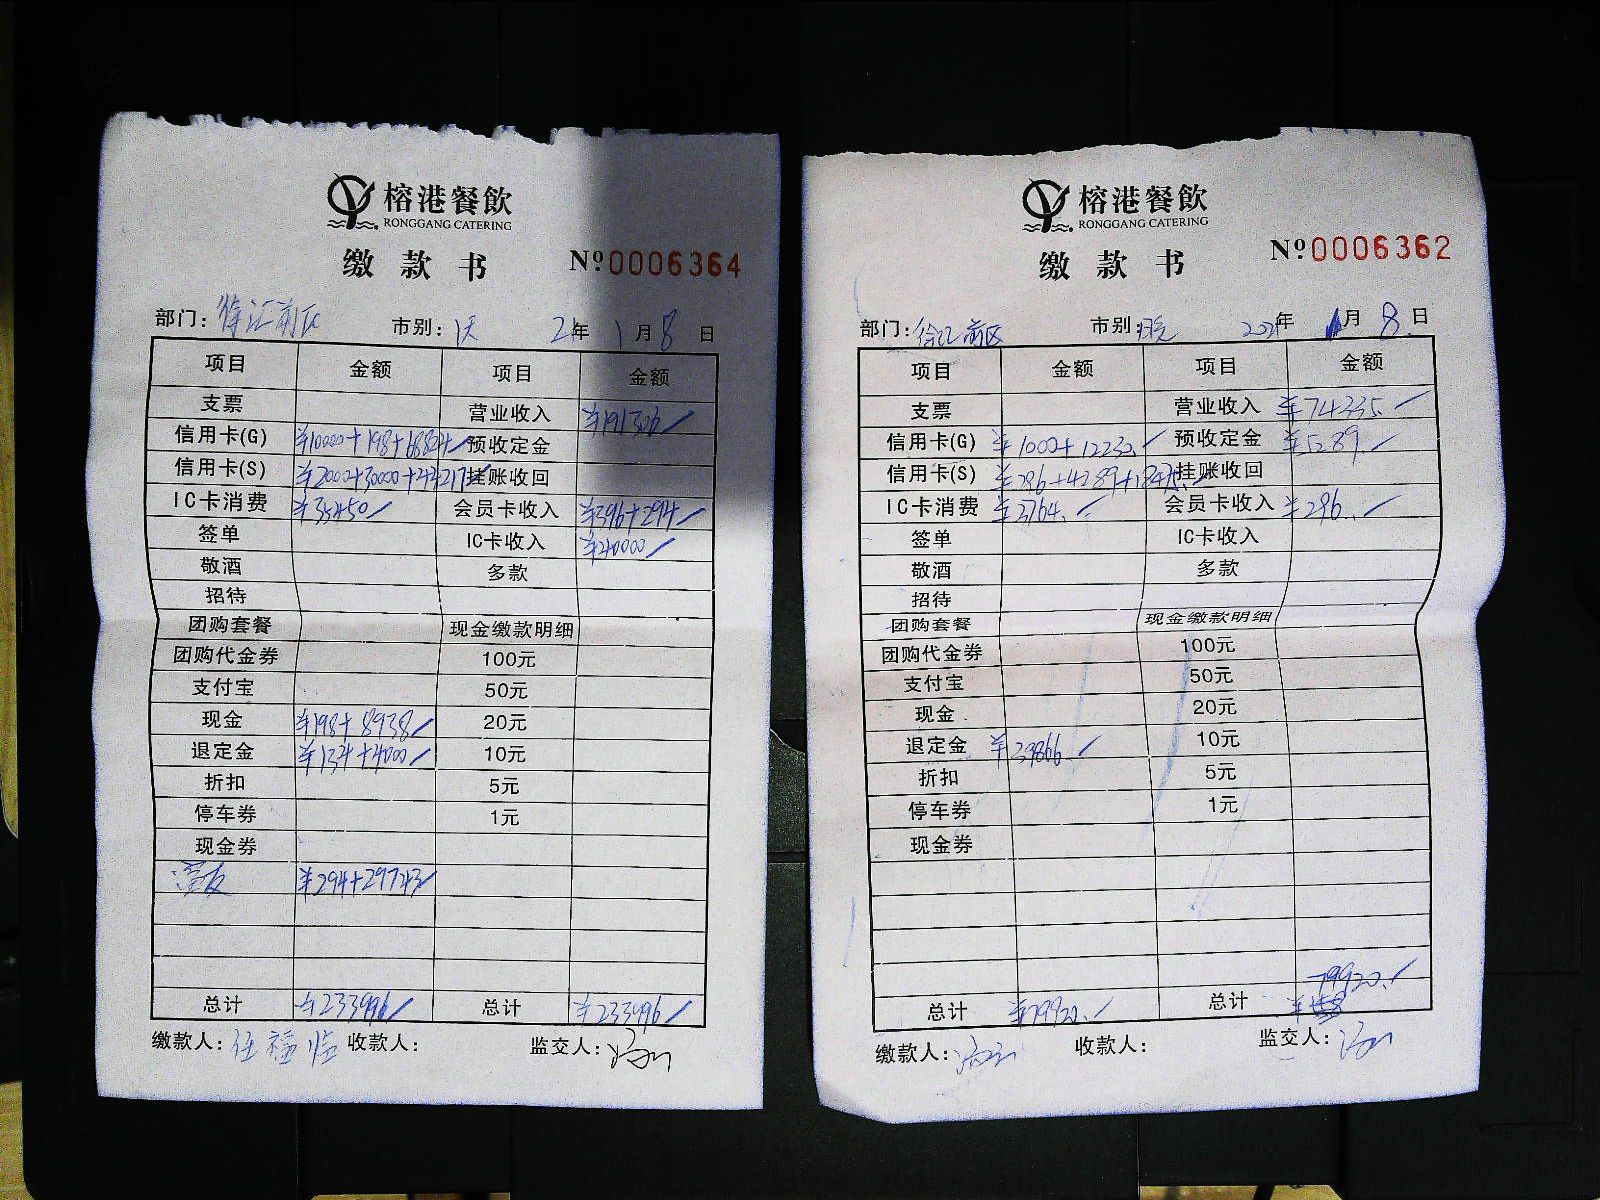 榕港餐飲
RONGGANG CATERING
缴款书 Nº0006364
部门: 徐汇前区 市别: 21年 1月8日
项目 金额 项目 金额
支票 营业收入 ¥191306
信用卡(G) ¥10000+198+68824 预收定金
信用卡(S) 挂账收回
IC卡消费 ¥35450 会员卡收入 ¥396+294
签单 IC卡收入
敬酒 多款
招待
团购套餐 现金缴款明细
团购代金券 100元
支付宝 50元
现金 ¥198+8938 20元
退定金 ¥134+4000 10元
折扣 5元
停车券 1元
现金券
¥294+29743
总计 ¥233996 总计 ¥233996
缴款人: 收款人: 监交人:
榕港餐飲
RONGGANG CATERING
缴款书 Nº0006362
部门: 徐汇前区 市别: 年 月 8日
项目 金额 项目 金额
支票 营业收入 ¥74335
信用卡(G) ¥1000+12232 预收定金 ¥5289
信用卡(S) 挂账收回
IC卡消费 ¥2764 会员卡收入 ¥296
签单 IC卡收入
敬酒 多款
招待
团购套餐 现金缴款明细
团购代金券 100元
支付宝 50元
现金 20元
退定金 ¥39866 10元
折扣 5元
停车券 1元
现金券
总计 ¥79920 总计 79920
缴款人: 收款人: 监交人: